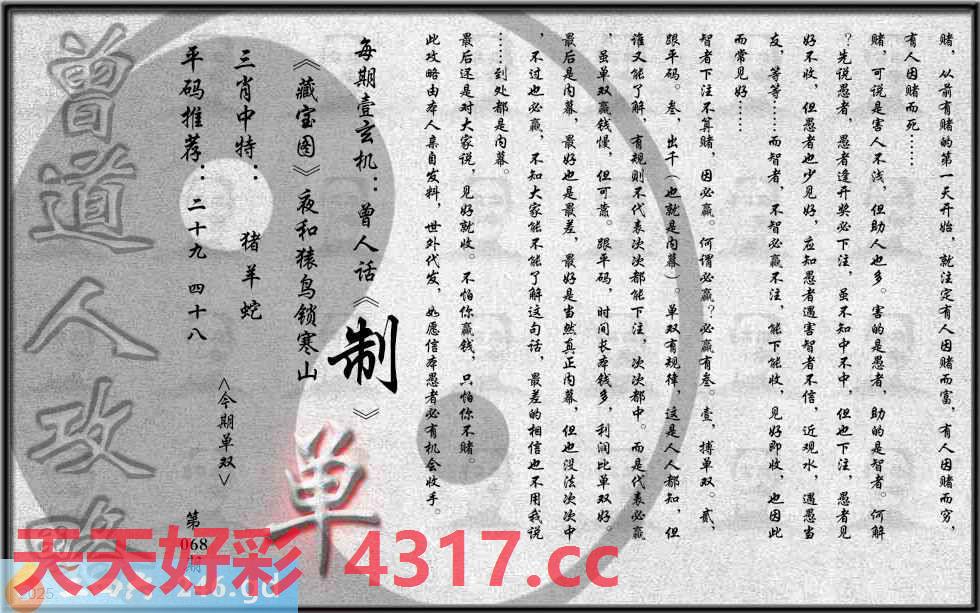 赌，从前有赌的第一天开始，就注定有人因赌而富，有人因赌而穷，
有人因赌而死……
赌，可说是害人不浅，但助人也多。害的是愚者，助的是智者。何解
？先说愚者，愚者逢开奖必下注，虽不知中不中，但也下注，愚者见
好不收，但愚者也少见好，应知愚者遇害智者不信，近观水，遇愚当
友，等等……而智者，不智必赢不注，能下能收，见好即收，也因此
而常见好……
智者下注不算赌，因必赢。何谓必赢？必赢有叁。壹，搏单双。贰，
跟平码。叁，出千（也就是内幕）。单双有规律，这是人人都知，但
谁又能了解，有规则不代表次次都能下注，次次都中。而是代表必赢
，虽单双赢钱慢，但可靠。跟平码，时间长本钱多，利润比单双好。
最后是内幕，最好也是最差，最好是当然真正内幕，但也没法次次中
，不过也必赢，不知大家能不能了解这句话，最差的相信也不用我说
……到处都是内幕。
最后还是对大家说，见好就收。不怕你赢钱，只怕你不赌。
此攻略由本人亲自发料，世外代发，如愿信本愚者必有机会收手。
每期壹玄机：曾人话《制》
《藏宝图》夜和猿鸟锁寒山
三肖中特：猪羊蛇
平码推荐：二十九 四十八
<今期单双>
单
第
068
期
曾道人攻略
天天好彩 4317.cc
246.gd
2025